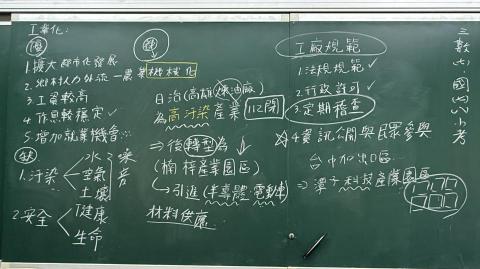 工業化:
優
1.擴大都市化發展
2.鄉村人力外流→農業機械化
3.工資較高
4.作息較穩定✓
5.增加就業機會
缺
1.污染 水 空氣 土壤 噪音
2.安全 健康 生命
日治(高雄煉油廠)
為高汙染產業 112閉
⇒後轉型為
(楠梓產業園區)
↳引進(半導體.電動車)
材料供應
工廠規範
1.法規規範✓
2.行政許可✓
3.定期稽查
☆4資訊公開與民眾參與
台中加工出口區
⇒潭子科技產業園區
三數七.國七小考